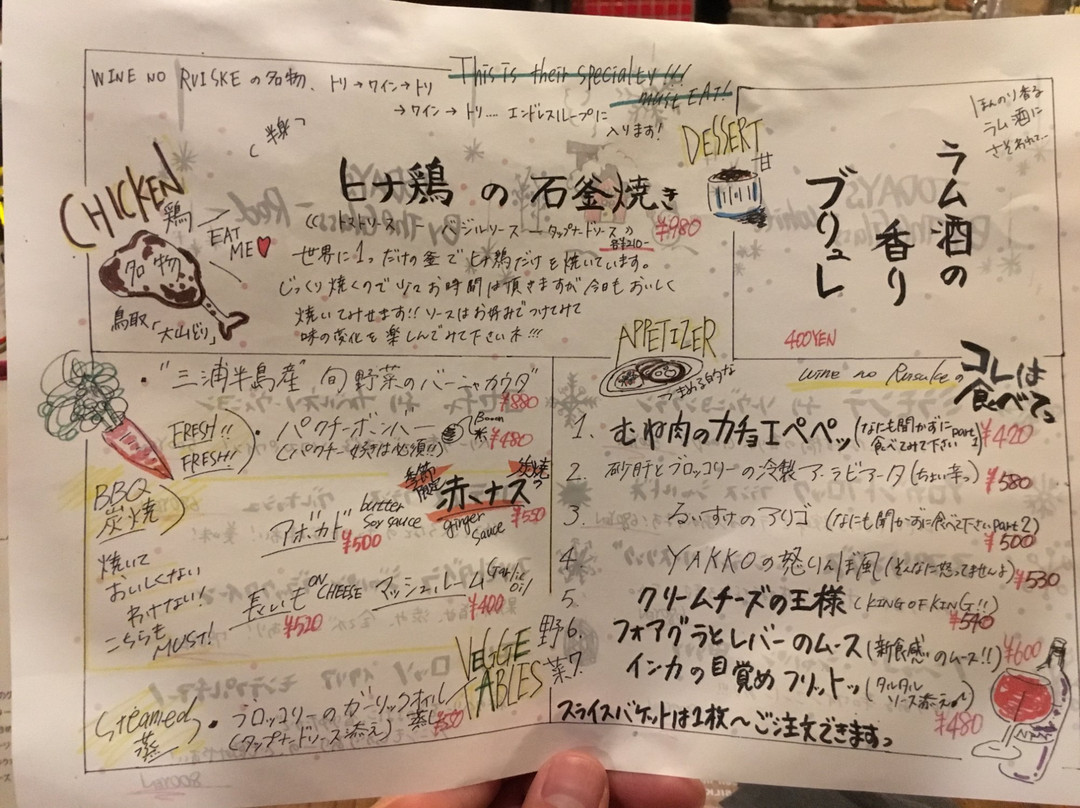 WINE NO RUISKE の名物、トリ→ワイン→トリ
→ワイン→トリ.... エンドレスループに
入ります!
This is their specialty!!!
must EAT!
CHICKEN
鶏
EAT
ME
名物
鳥取「大山どり」
(半熟っ
ヒナ鶏 の 石釜焼き
¥980
バジルソース ータップナードソース
世界に1つだけの釜でヒナ鶏だけを焼いています。
じっくり焼くので少々お時間は頂きますが今日もおいしく
焼いてみせます!!ソースはお好みでつけてみて
味の変化を楽しんでみて下さいネ!!!
DESSERT
甘
ほんのり香る
ラム酒に
さそわれて...
ラム酒の
香り
ブリュレ
400YEN
・"三浦半島産" 旬野菜のバーニャカウダ
¥880
FRESH!!
FRESH!!
・パクチーボンバー
Boom
¥480
(パクチー好きは必須!!)
BBQ
炭焼
焼いて
おいしくない
わけない!
こちらも
MUST!
季節
限定
炭焼っ
赤ナス
ginger
sauce
¥550
アボカド
butter
soy sauce
¥500
長いも
ON
CHEESE
¥520
マッシュルーム
Garlic
oil
¥400
VEGGE
TABLES
野
菜
Steamed
蒸
・ブロッコリーのガーリックオイル
蒸し
(タップナードソース添え)
APPETIZER
つまめる的な
wine no Ruiske の
コレは
食べてっ
1. むね肉のカチョエペペッ (なにも聞かずに
食べてみて下さい part1)
¥420
2. 砂肝とブロッコリーの冷製アラビアータ(ちょい辛っ)
¥580
3. るいすけのアリゴ (なにも聞かずに食べて下さいpart2)
¥500
4. YAKKOの怒りんぼ風(そんなに怒ってませんよ)
¥530
5. クリームチーズの王様 (KING OF KING!!)
¥540
6. フォアグラとレバーのムース (新食感♡のムース!!)
¥600
7. インカの目覚めフリットッ (タルタル
ソース添えっ)
¥480
スライスバケットは1枚〜ご注文できますっ